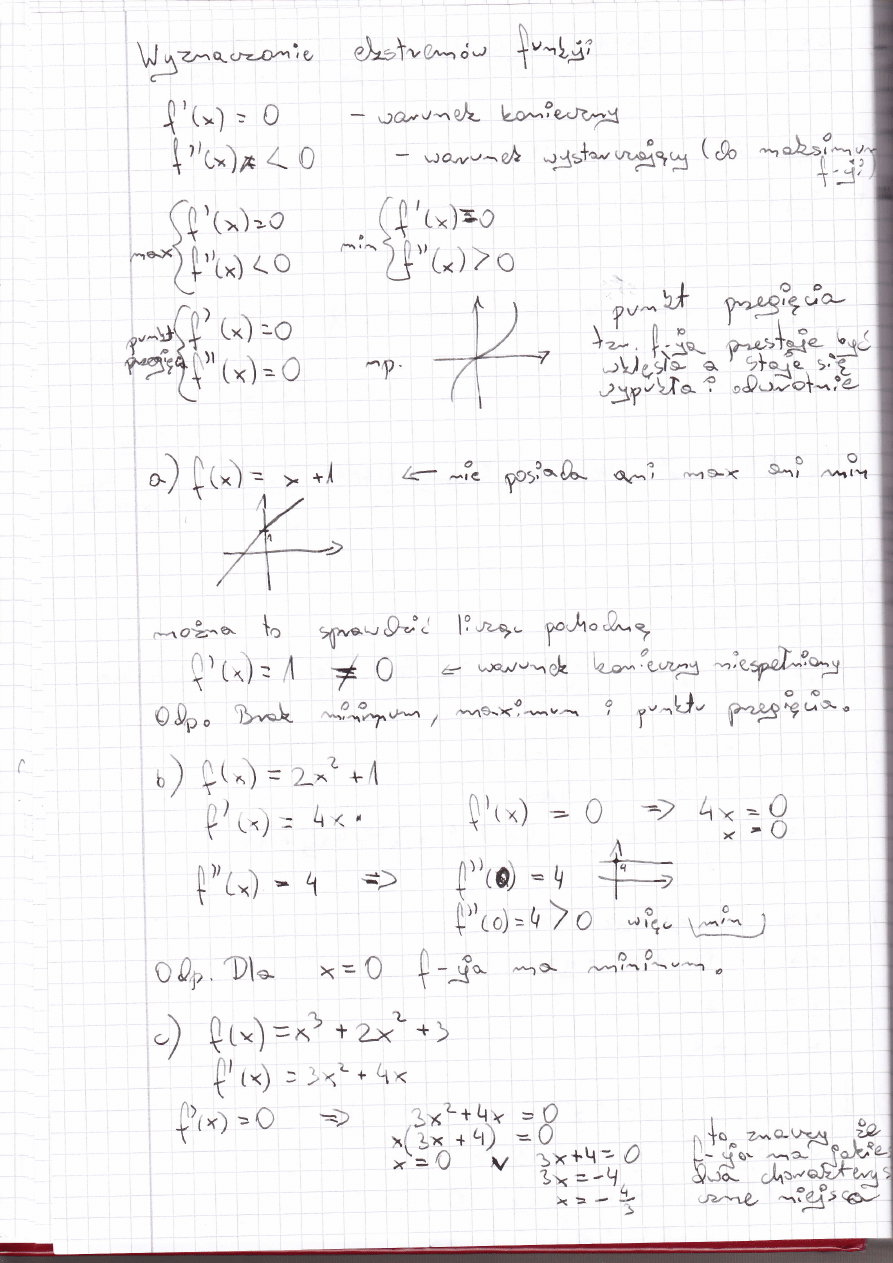 Wyznaczanie ekstremów funkcji
f'(x) = 0 – warunek konieczny
f''(x) < 0 – warunek wystarczający (do maksimum
f-cji)
max { f'(x)=0 min { f'(x)=0
f''(x) < 0 f''(x) > 0
punkt przegięcia
punkt { f'(x)=0 tzn. f-cja przestaje być
przegięcia f''(x)=0 np. wklęsła a staje się
wypukła i odwrotnie
a) f(x) = x+1 ← nie posiada ani max ani min
1
można to sprawdzić licząc pochodną
f'(x) = 1 ≠ 0 ← warunek konieczny niespełniony
Odp. Brak minimum, maximum i punktu przegięcia.
b) f(x) = 2x² + 1
f'(x) = 4x f'(x) = 0 => 4x = 0
x = 0
f''(x) = 4 => f''(0) = 4 4
f''(0) = 4 > 0 więc min
Odp. Dla x = 0 f-cja ma minimum.
c) f(x) = x³ + 2x² + 3
f'(x) = 3x² + 4x
f'(x) = 0 => 3x² + 4x = 0
x(3x + 4) = 0 to znaczy że
x = 0 v 3x+4 = 0 f-cja ma jakieś
3x = -4 dwa charakterys
x = -4/3 czne miejsca